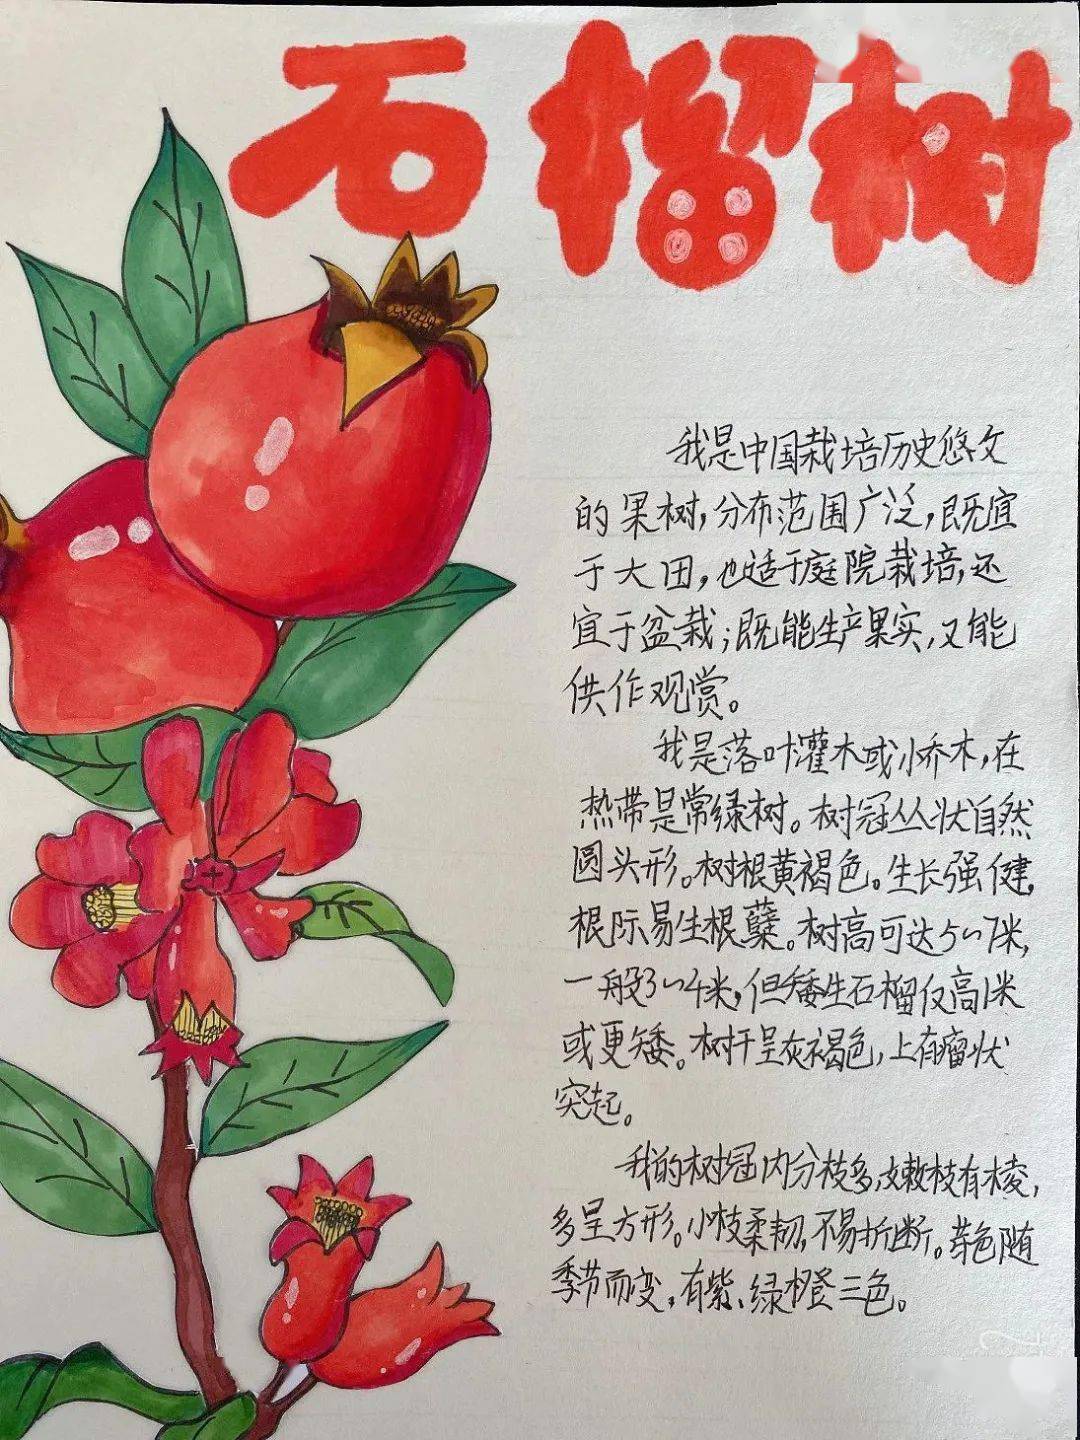 石榴树
我是中国栽培历史悠文
的果树,分布范围广泛,既宜
于大田,也适于庭院栽培,还
宜于盆栽;既能生产果实,又能
供作观赏。
我是落叶灌木或小乔木,在
热带是常绿树。树冠丛状自然
圆头形。树根黄褐色。生长强健,
根际易生根蘖。树高可达5~7米,
一般3~4米,但矮生石榴仅高1米
或更矮。树干呈灰褐色,上有瘤状
突起。
我的树冠内分枝多,嫩枝有棱,
多呈方形。小枝柔韧,不易折断。芽色随
季节而变,有紫、绿橙三色。